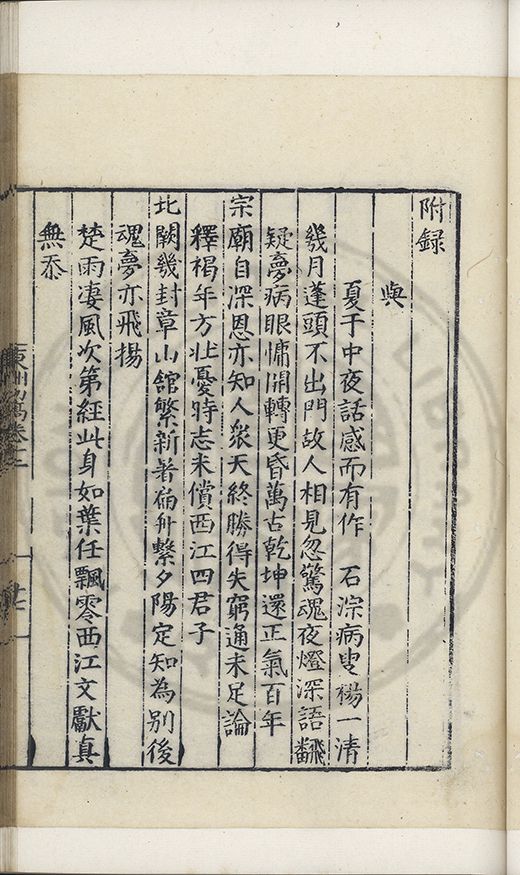 附録
與
夏于中夜話感而有作 石淙病叟楊一清
幾月蓬頭不出門故人相見忽驚魂夜燈深語飜
疑夢病眼慵開轉更昏萬古乾坤還正氣百年
宗廟自深恩亦知人衆天終勝得失窮通未足論
釋褐年方壮憂時志未償西江四君子
北闕幾封章山舘繁新著扁舟繫夕陽定知為別後
魂夢亦飛揚
楚雨凄風次第經此身如葉任飄零西江文獻真
無忝
東洲初稿卷十二